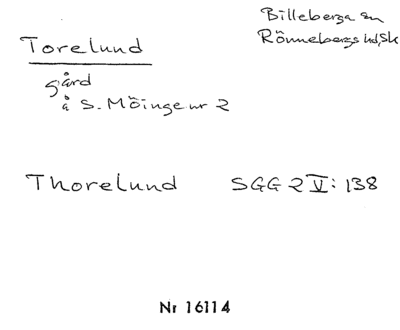 Billeberga sn
Torelund
Rönnebergs hd, Sk
gård
å S. Möinge nr 2
Thorelund SGG 2 V: 138
Nr 16114